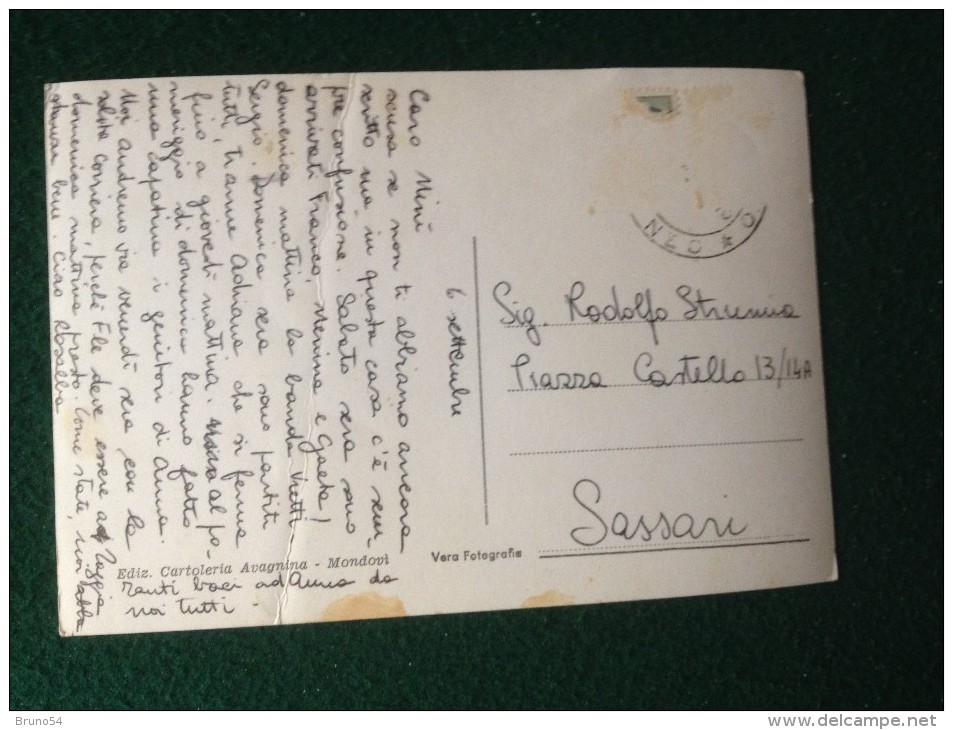 6 settembre
Caro Mimì
scusa se non ti abbiamo ancora
scritto ma in questa casa c'è sem-
pre confusione. Sabato sera sono
arrivati Franco, Mennina e Gaeta!
domenica mattina la banda Vietti
Sergio. Domenica sera sono partiti
tutti, tranne Adriana che si ferma
fino a giovedì mattina. al po-
meriggio di domenica hanno fatto
una capatina i genitori di Anna.
Noi andremo via venerdì sera con la
solita corriera, perchè Ele deve essere a
domenica mattina presto. Come state, noi
stanno bene. Ciao Rosalba
Tanti baci ad Anna da
noi tutti.
Ediz. Cartoleria Avagnina - Mondovì
Vera Fotografia
Sig. Rodolfo Strumia
Piazza Castello 13/14A
Sassari
Bruno54
delcampe.net